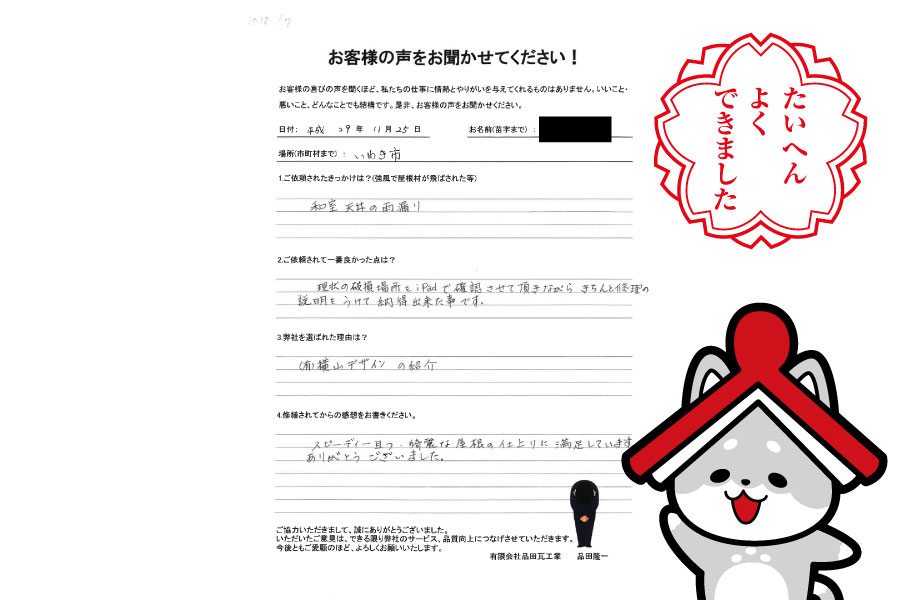 お客様の声をお聞かせてください！
お客様の喜びの声を聞くほど、私たちの仕事に情熱とやりがいを与えてくれるものはありません。いいこと・
悪いこと、どんなことでも結構です。是非、お客様の声をお聞かせください。
日付： 平成 29 年 11 月 25 日 お名前(苗字まで) ：
場所(市町村まで) ： いわき市
1.ご依頼されたきっかけは？(強風で屋根材が飛ばされた等)
和室天井の雨漏り
2.ご依頼されて一番良かった点は？
現状の破損場所をiPadで確認させて頂きながら きちんと修理の
説明をうけて納得出来た事です。
3.弊社を選ばれた理由は？
(有)横山デザイン の紹介
4.修繕されてからの感想をお書きください。
スピーディー且つ、綺麗な屋根の仕上りに満足しています
ありがとうございました。
ご協力いただきまして、誠にありがとうございました。
いただいたご意見は、できる限り弊社のサービス、品質向上につなげさせていただきます。
今後ともご愛顧のほど、よろしくお願いいたします。
有限会社品田瓦工業 品田隆一
たいへん
よく
できました